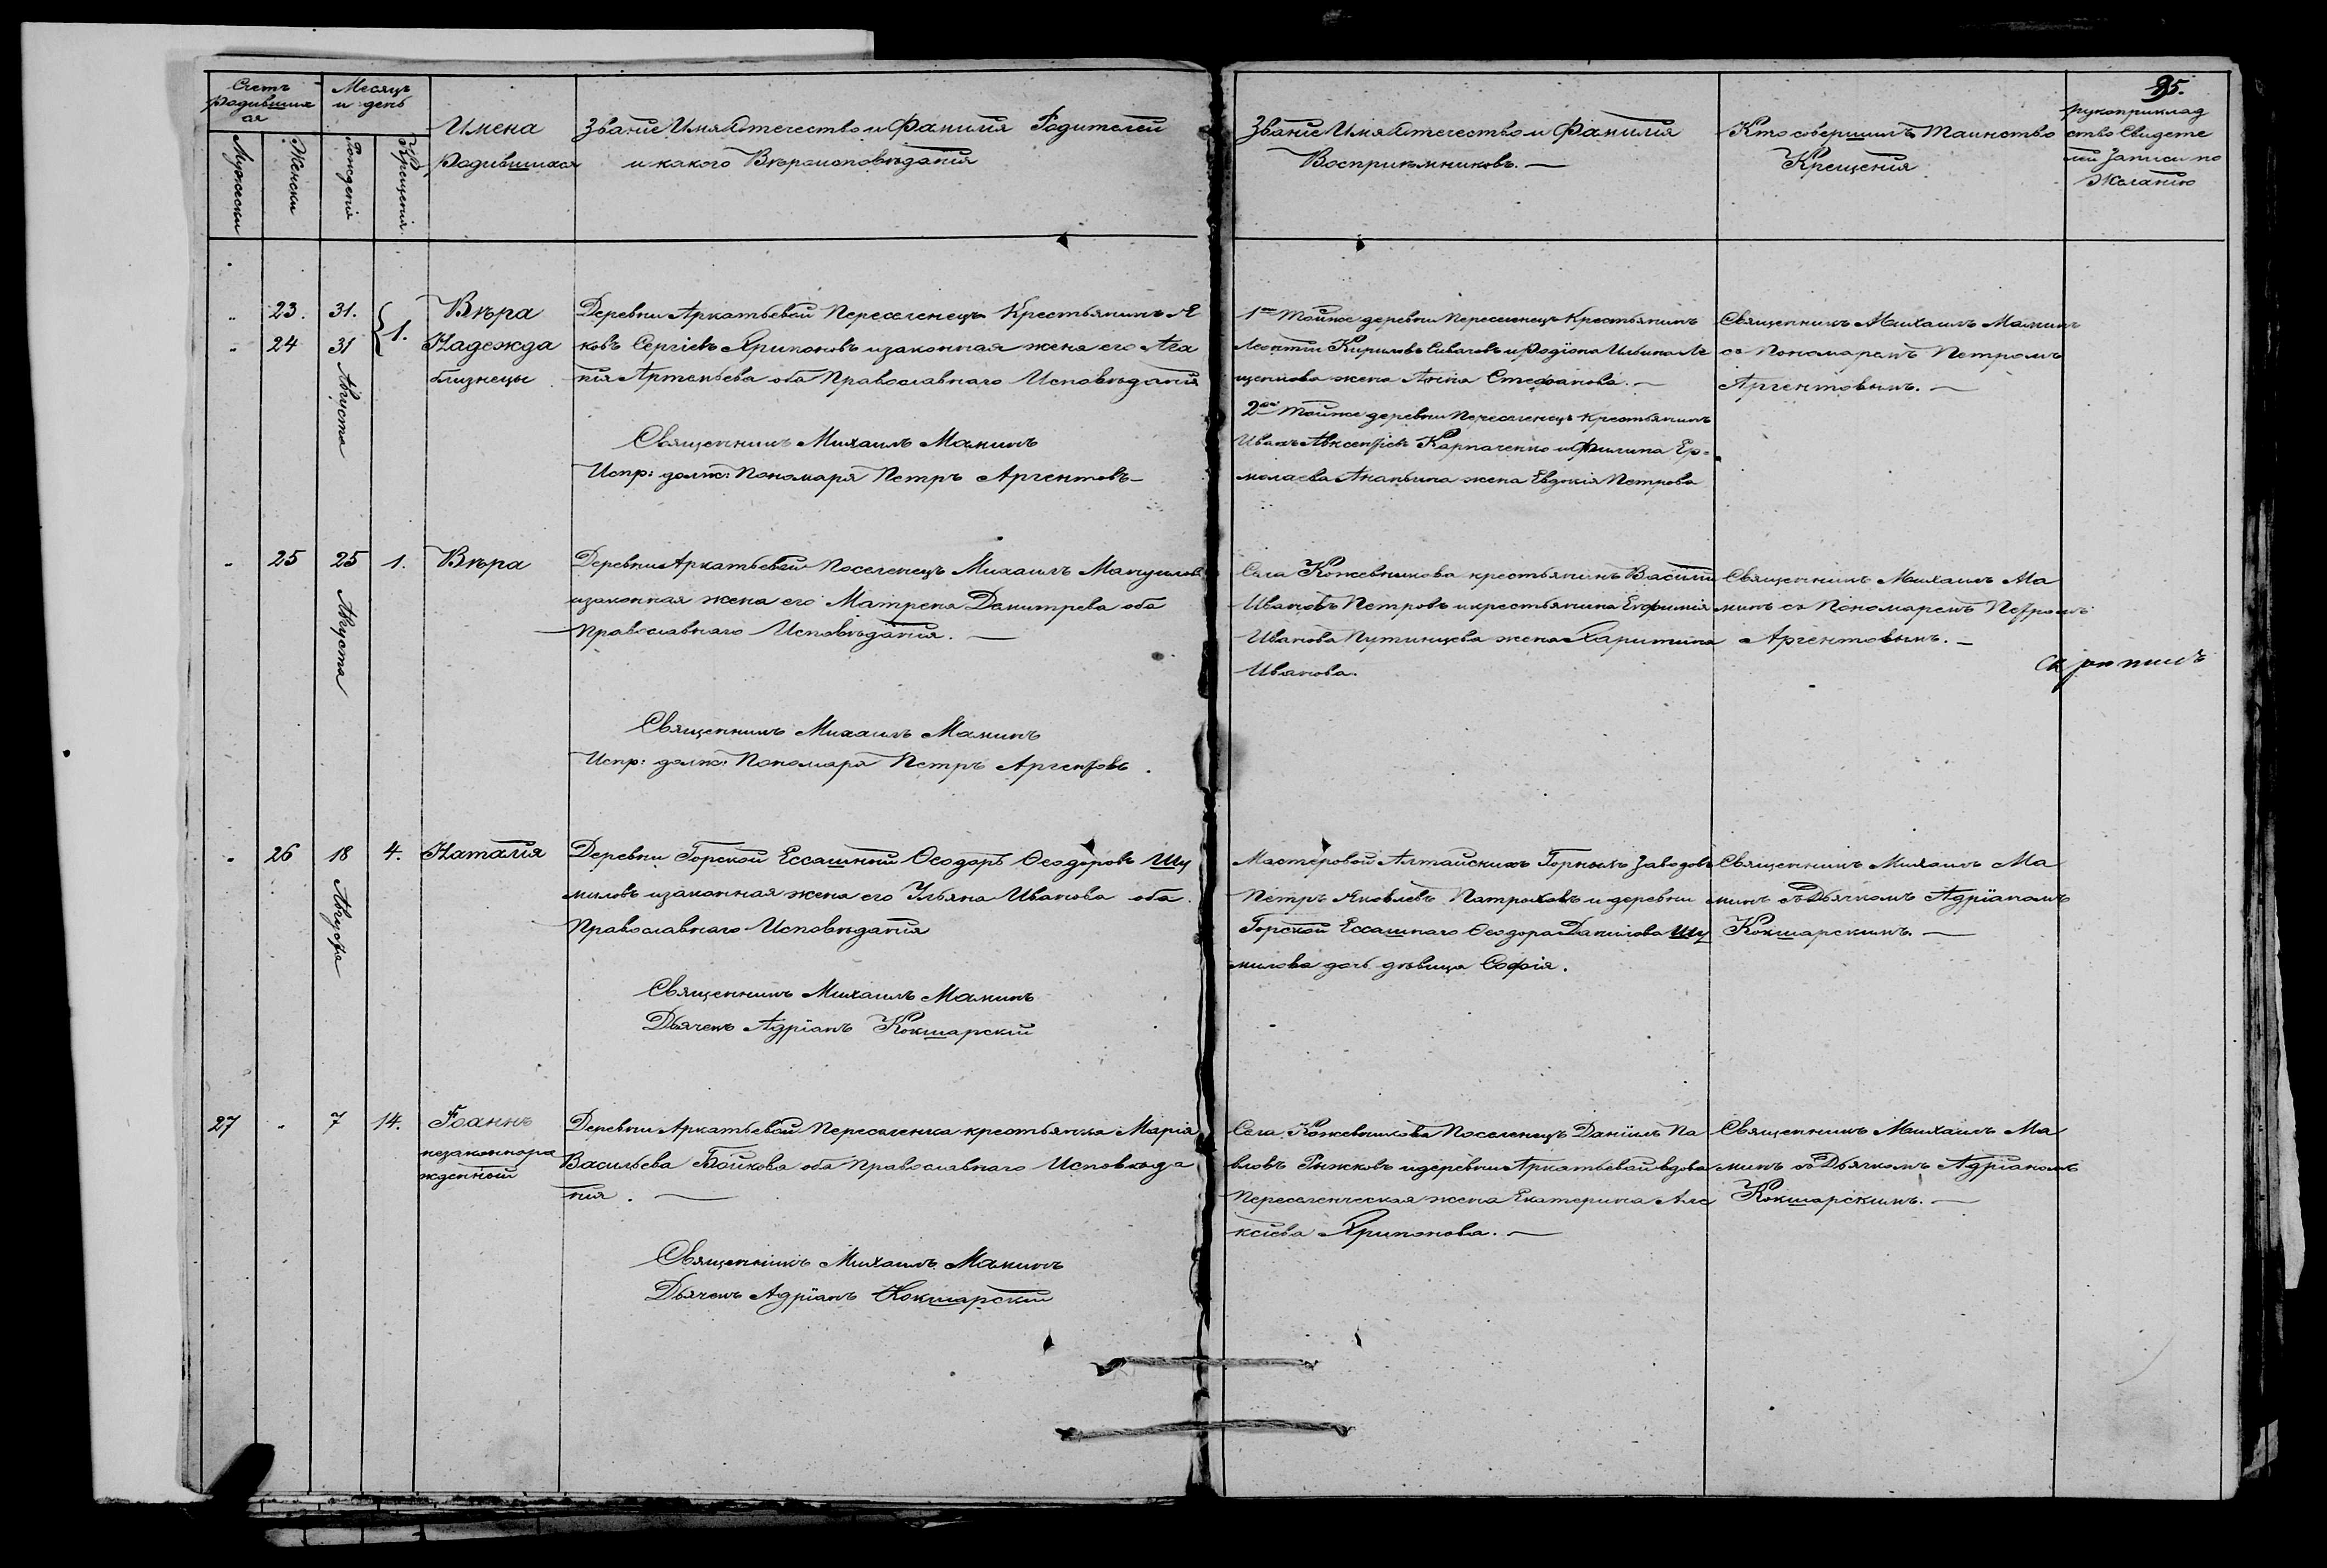 95.
Счетъ родившихся
Месяцъ и день
Мужески
Женски
Рождения
Крещения
Имена родившихся
Званіе Имя Отечество и Фамилія Родителей
и какого Вѣроисповѣданія
Званіе Имя Отечество и Фамилія
Воспріемниковъ. —
Кто совершилъ Таинство
Крещенія
рукоприклад
ство Свидете
лей Записи по
Желанію
23. 31. 1. Вѣра
24 31 Надежда
близнецы
Августа
Деревни Аркатьевой Переселенецъ Крестьянинъ Я
ковъ Сергіевъ Хрипоновъ и законная жена его Ага
пія Артемьева оба Православнаго Исповѣданія
Священникъ Михаилъ Маминъ
Испр: долж: Пономаря Петръ Аргентовъ
1ой Тойже деревни Переселенецъ Крестьянинъ
Леонтій Кириловъ Сивачовъ и Родіона Ильина Ле
щенкова жена Анна Стефанова. —
2ой Тойже деревни Переселенецъ Крестьянинъ
Иванъ Авксентіевъ Карпаченко и Филипа Ер-
молаева Ананьина жена Евдокія Петрова
Священникъ Михаилъ Маминъ
съ Пономаремъ Петромъ
Аргентовымъ. —
25 25 1. Вѣра
Августа
Деревни Аркатьевой Поселенецъ Михаилъ Мануиловъ
и законная жена его Матрена Димитрева оба
Православнаго Исповѣданія. —
Священникъ Михаилъ Маминъ
Испр: долж: Пономаря Петръ Аргентовъ.
Села Кожевникова крестьянинъ Василій
Ивановъ Петровъ и крестьянина Евфимія
Иванова Путинцева жена Харитина
Иванова.
Священникъ Михаилъ Ма
минъ съ Пономаремъ Петромъ
Аргентовымъ. —
26 18 4. Наталія
Августа
Деревни Горской Ессашный Ѳеодоръ Ѳеодоровъ Шу
миловъ и законная жена его Ульяна Иванова оба
Православнаго Исповѣданія
Священникъ Михаилъ Маминъ
Дьячекъ Адріанъ Кокшарскій
Мастеровой Алтайскихъ Горныхъ Заводовъ
Петръ Яковлевъ Патроховъ и деревни
Горской Ессашнаго Ѳеодора Данилова Шу
милова дочь дѣвица Софія.
Священникъ Михаилъ Ма
минъ съ Дьячкомъ Адріаномъ
Кокшарскимъ. —
27 7 14. Іоаннъ
незаконноро
жденный
Деревни Аркатьевой Переселенка крестьянка Марія
Васильева Бойкова оба Православнаго Исповѣда
нія. —
Священникъ Михаилъ Маминъ
Дьячекъ Адріанъ Кокшарскій
Села Кожевникова Поселенецъ Даніилъ Па
вловъ Рыжковъ и деревни Аркатьевой вдова
Переселенческая жена Екатерина Але
ксіева Хрипонова. —
Священникъ Михаилъ Ма
минъ съ Дьячкомъ Адріаномъ
Кокшарскимъ. —